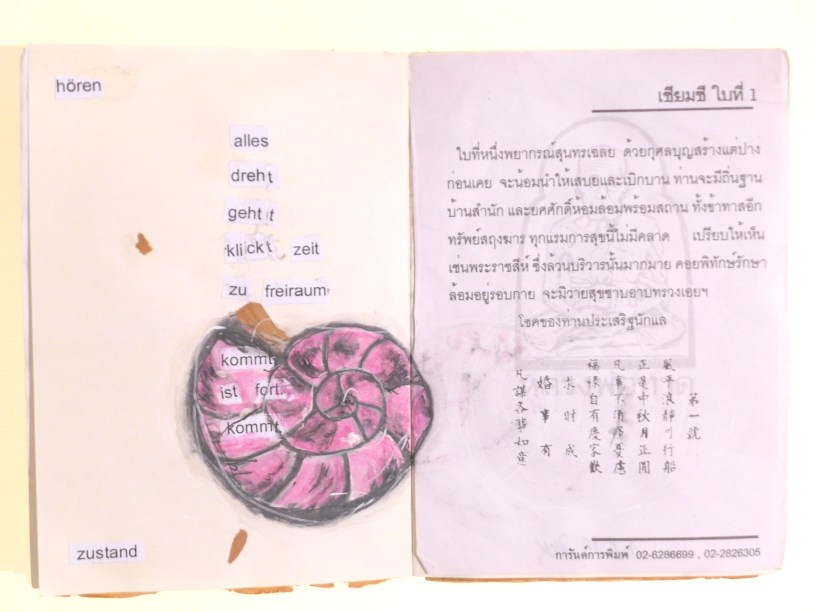 hören
alles
dreht
geht
klickt zeit
zu freiraum
kommt
ist fort.
kommt
zustand
เซียมซี ใบที่ 1
ใบที่หนึ่งพยากรณ์สุนทรเฉลย ด้วยกุศลบุญสร้างแต่ปาง
ก่อนเคย จะน้อมนำให้เสบยและเบิกบาน ท่านจะมีถิ่นฐาน
บ้านสำนัก และยศศักดิ์ห้อมล้อมพร้อมสถาน ทั้งข้าทาสอีก
ทรัพย์สฤงฆาร ทุกแรมการสุขนี้ไม่มีคลาด เปรียบให้เห็น
เช่นพระราชสีห์ ซึ่งล้วนบริวารนั้นมากมาย คอยพิทักษ์รักษา
ล้อมอยู่รอบกาย จะมิวายสุขซาบอาบทรวงเอยฯ
โชคของท่านประเสริฐนักแล
第一號
風平浪靜可行船
正是中秋月正圓
凡事不須多憂慮
福祿自有慶家歡
求財成
婚事有
凡謀各事如意
การันต์การพิมพ์ 02-6286699 , 02-2826305